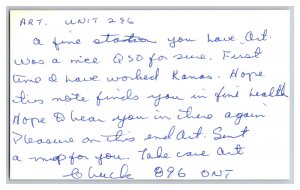 ART. UNIT 296
a fine station you have Art
was a nice QSO for sure. First
time I have worked Kanas. Hope
this note finds you in fine health
Hope I hear you in there again
Pleasure on this end Art. Sent
a map for you. Take care Art
Chuck 896 ONT